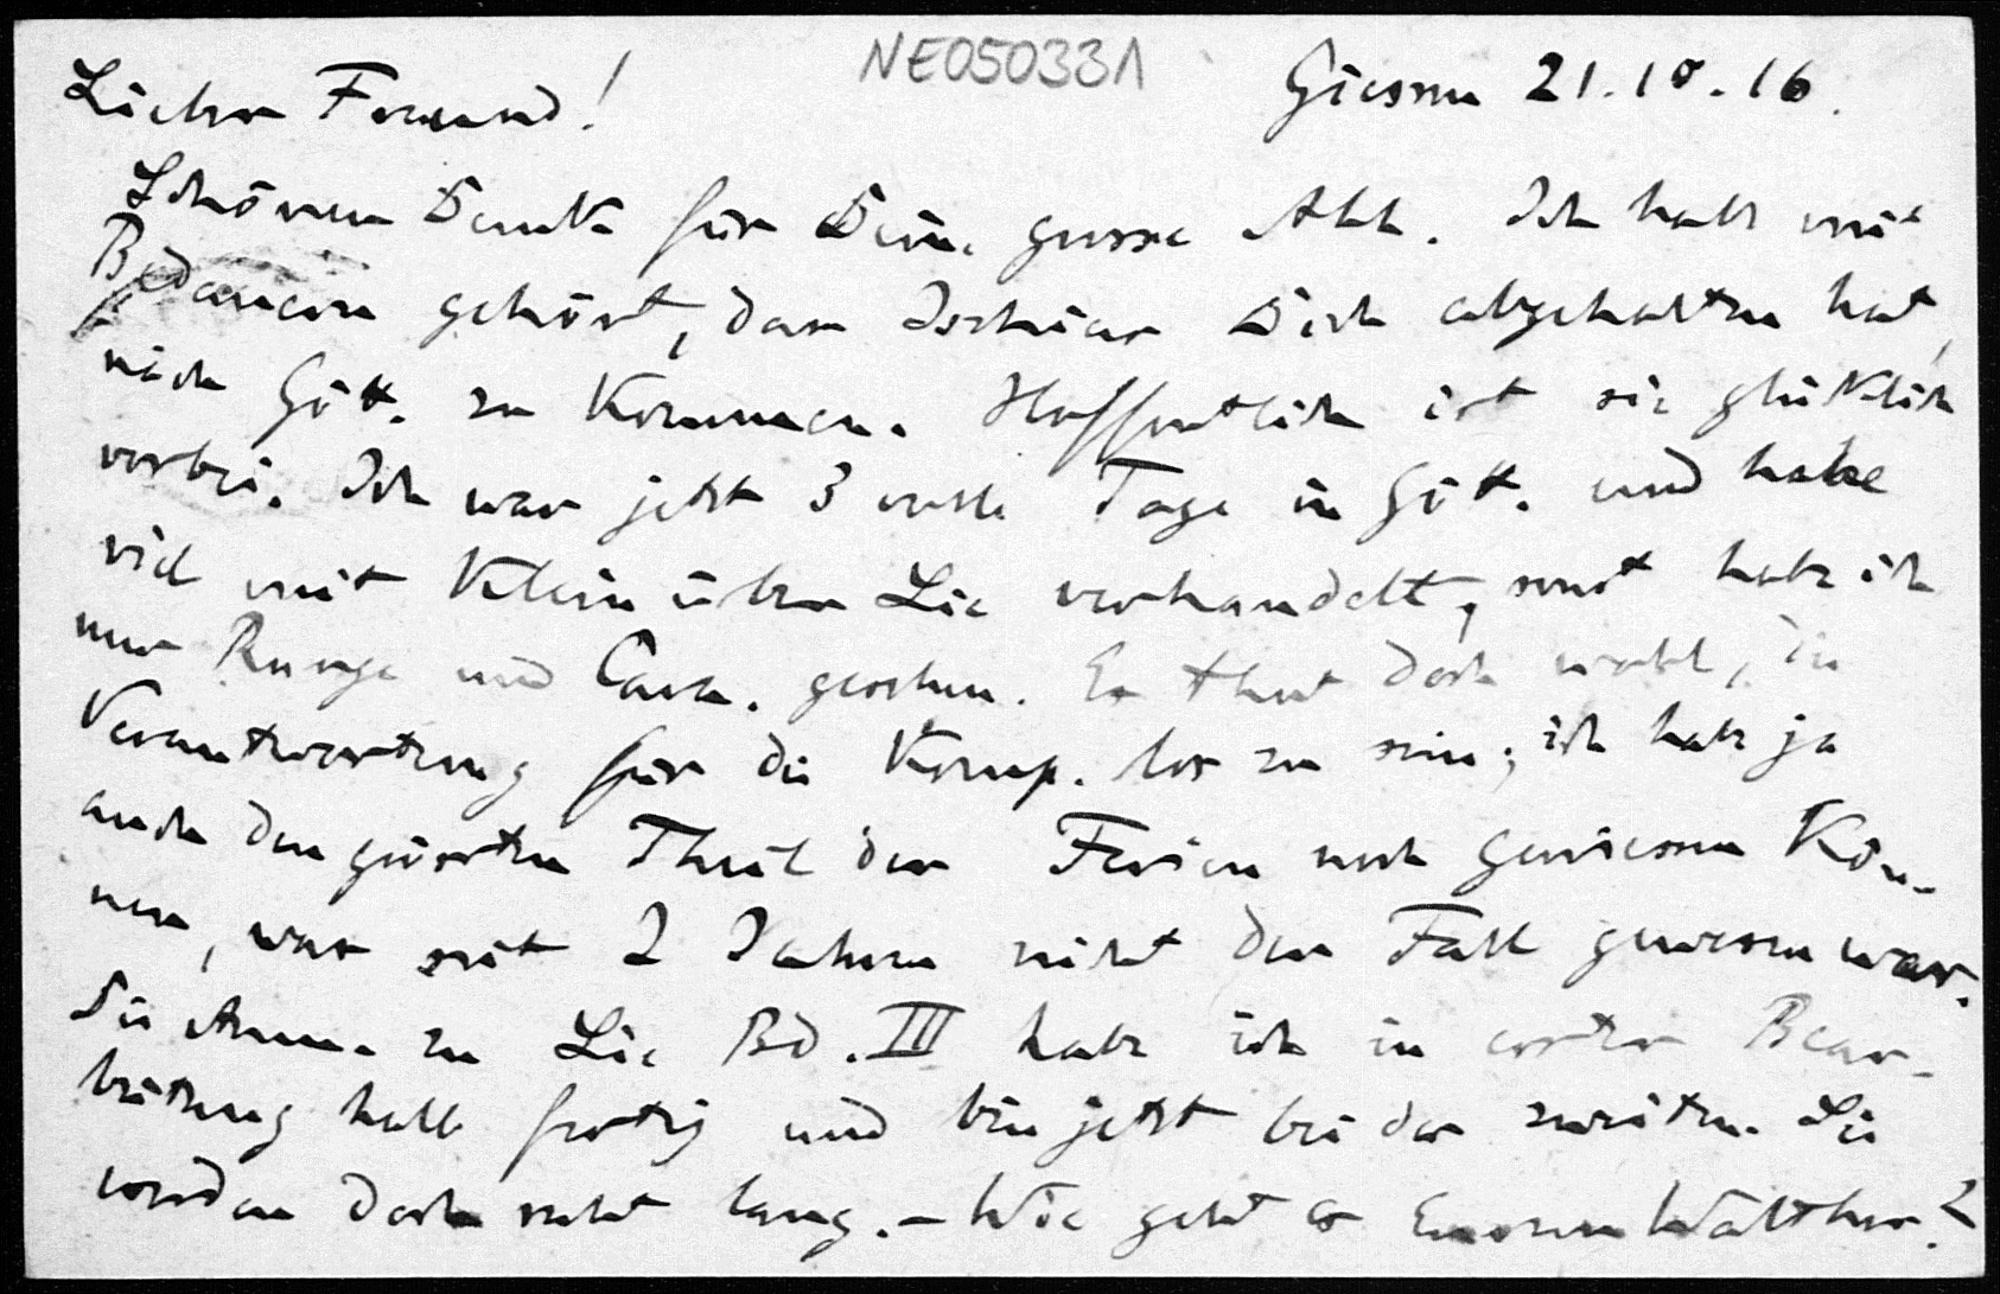 NE050331
Giessen 21.10.16.
Lieber Freund!
Schönen Dank für Deine grosse Abh. Ich habe mit
Bedauern gehört, dass Ischias Dich abgehalten hat,
nach Gött. zu kommen. Hoffentlich ist sie glücklich
vorbei. Ich war jetzt 3 volle Tage in Gött. und habe
viel mit Klein über Lie verhandelt, sonst habe ich
nur Runge und Cara. gesehen. Es thut doch wohl, die
Verantwortung für die Komp. los zu sein; ich habe ja
auch den grössten Theil der Ferien noch geniessen kön-
nen, was seit 2 Jahren nicht der Fall gewesen war.
Die Anm. zu Lie Bd. III habe ich in erster Bear-
beitung halb fertig und bin jetzt bei der zweiten. Sie
werden doch recht lang. – Wie geht es Eurem Walther?